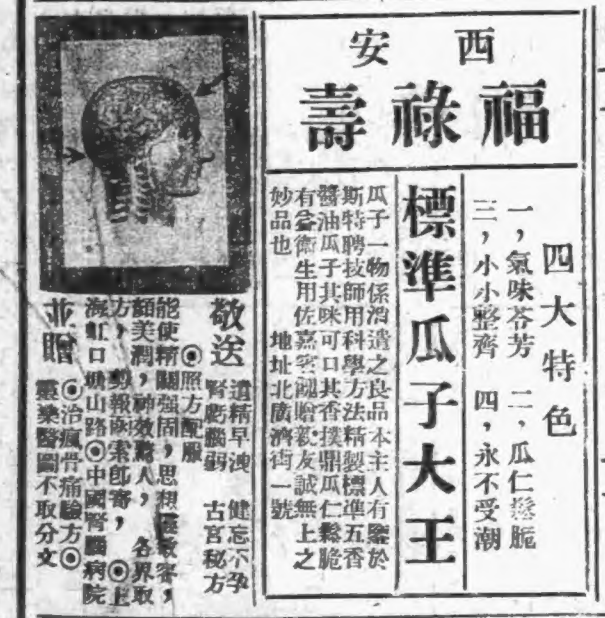 西安
福祿壽
四大特色
一，氣味苓芳　二，瓜仁鬆脆
三，小小整齊　四，永不受潮
標準瓜子大王
瓜子一物係消遣之良品本主人有鑒於
斯特聘技師用科學方法精製標準五香
醬油瓜子其味可口其香撲鼎瓜仁鬆脆
有益衛生用佐嘉賓餽贈親友誠無上之
妙品也　地址北廣濟街一號
敬送
遺精早洩　健忘不孕
腎虧腦弱　古宮秘方
◉照方配服
能使精關强固，思想
顏美潤，神效驚人，各界取
方，剪報函索卽寄，◉上
海虹口塘山路◉中國腎腦病院
並贈
◉治瘋骨痛驗方◉
靈藥醫圖不取分文